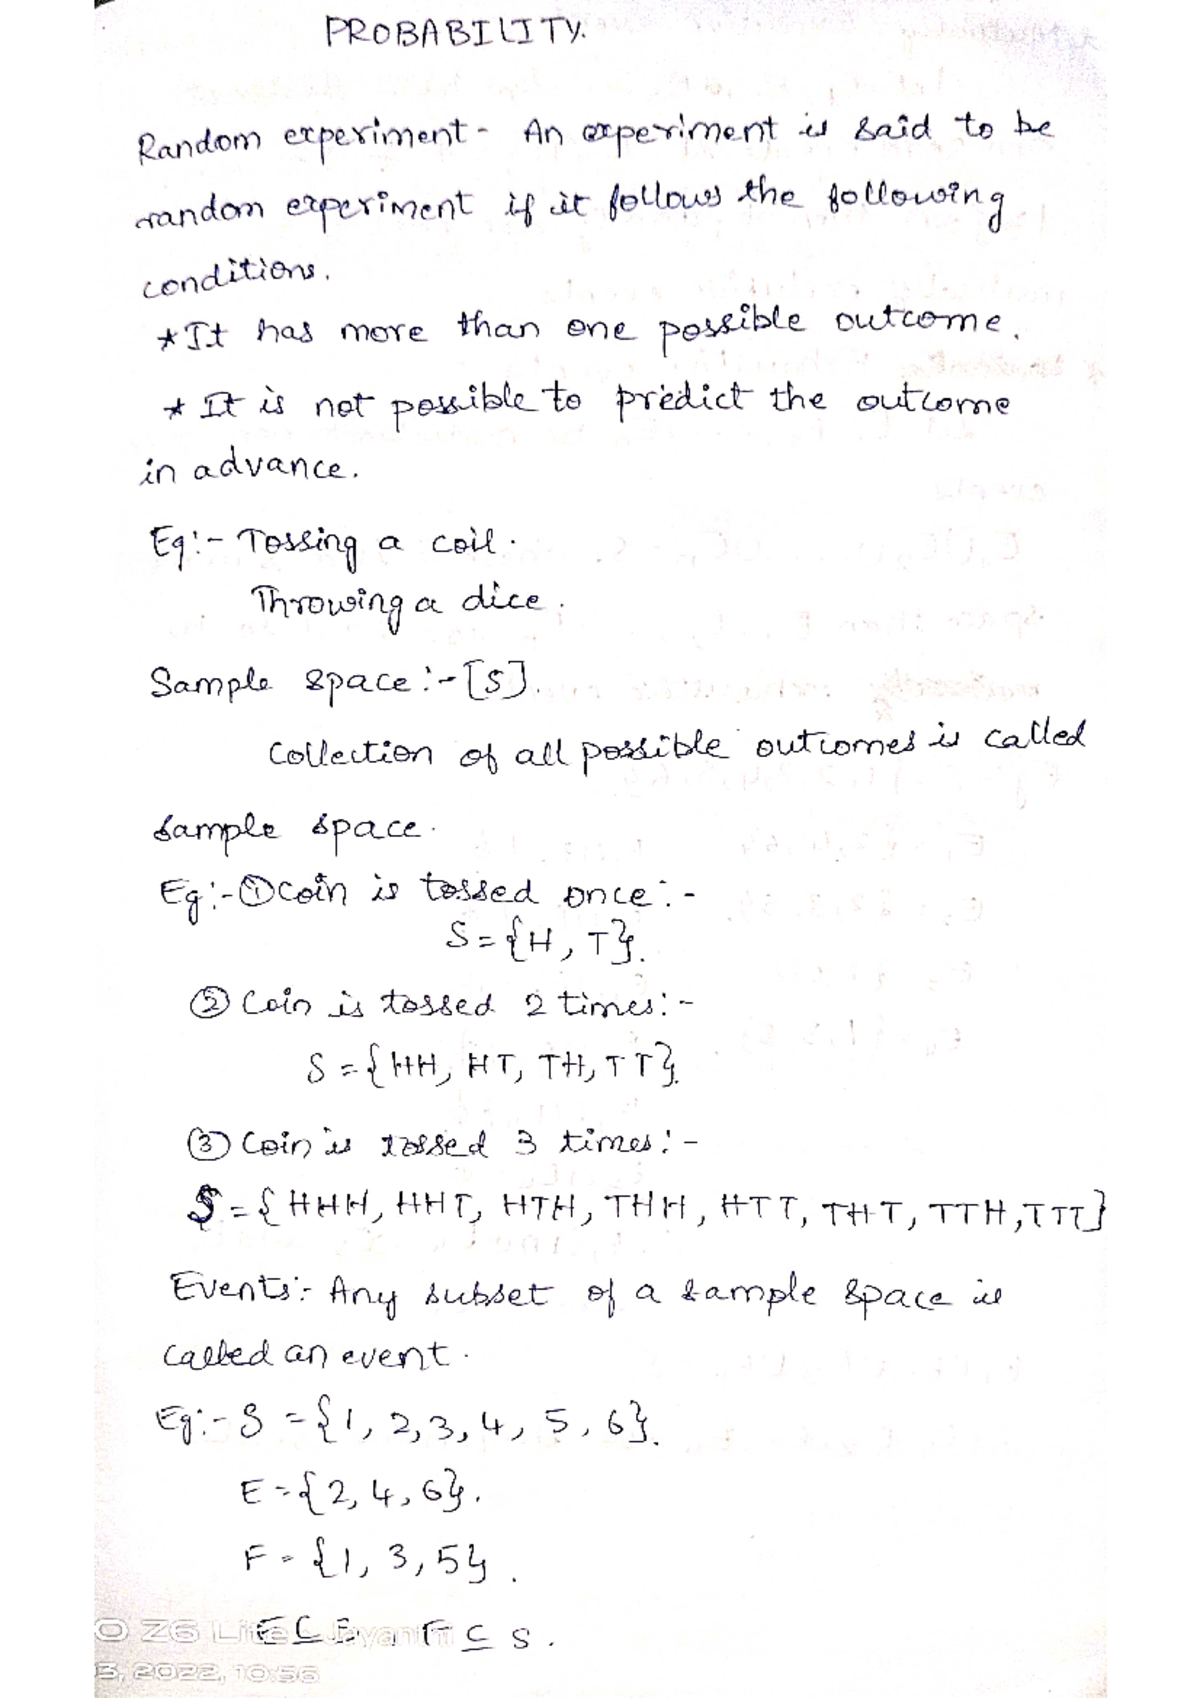 PROBABILITY.
Random experiment - An experiment is said to be
random experiment if it follows the following
conditions.
* It has more than one possible outcome.
* It is not possible to predict the outcome
in advance.
Eg:- Tossing a coil.
Throwing a dice.
Sample space:- [S].
Collection of all possible outcomes is called
sample space.
Eg:- ① Coin is tossed once:-
S = {H, T}.
② Coin is tossed 2 times:-
S = {HH, HT, TH, TT}.
③ Coin is tossed 3 times:-
S = {HHH, HHT, HTH, THH, HTT, THT, TTH, TTT}
Events:- Any subset of a sample space is
called an event.
Eg:- S = {1, 2, 3, 4, 5, 6}.
E = {2, 4, 6}.
F = {1, 3, 5}.
E ⊆ , F ⊆ S.
O Z6 Lite
3, 2022, 10:56